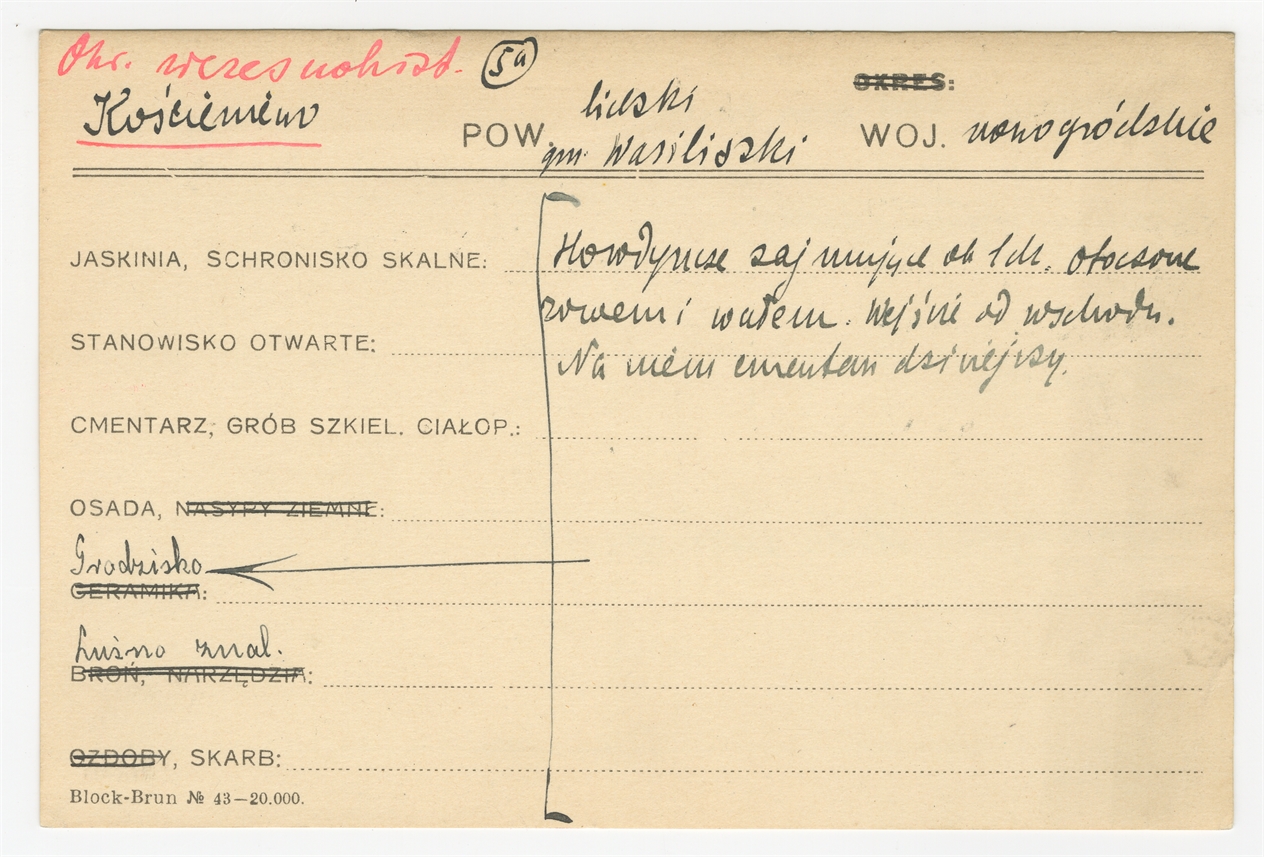 Okr. wczesnohist. 5a
Kościeniewo
POW. lidzki
gm. Wasiliszki
OKRES:
WOJ. nowogródzkie
JASKINIA, SCHRONISKO SKALNE:
zajmujące ok 1 ch. otoczone
rowem i wałem. Wejście od wschodu.
STANOWISKO OTWARTE:
Na niem cmentarz dzisiejszy.
CMENTARZ, GRÓB SZKIEL. CIAŁOP.:
OSADA, NASYPY ZIEMNE:
Grodzisko
CERAMIKA:
Luźno znal.
BROŃ, NARZĘDZIA:
OZDOBY, SKARB:
Block-Brun № 43—20.000.